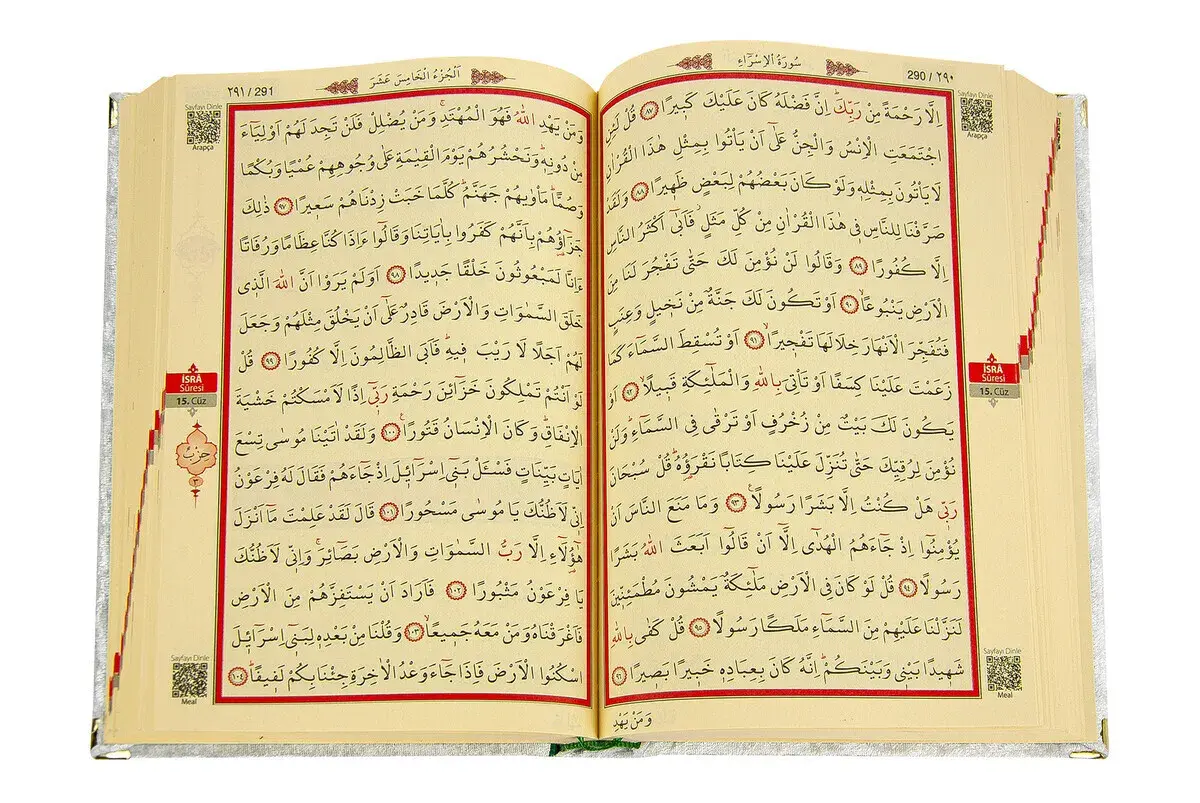 سُورَةُ الْاِسْرَاءِ
290 / ٢٩٠
Sayfayı Dinle
اِلَّا رَحْمَةً مِنْ رَبِّكَۜ اِنَّ فَضْلَهُ كَانَ عَلَيْكَ كَب۪يرًا ﴿٨٧﴾ قُلْ لَئِنِ
اجْتَمَعَتِ الْاِنْسُ وَالْجِنُّ عَلٰٓى اَنْ يَأْتُوا بِمِثْلِ هٰذَا الْقُرْاٰنِ
لَا يَأْتُونَ بِمِثْلِه۪ وَلَوْ كَانَ بَعْضُهُمْ لِبَعْضٍ ظَه۪يرًا ﴿٨٨﴾ وَلَقَدْ
صَرَّفْنَا لِلنَّاسِ ف۪ي هٰذَا الْقُرْاٰنِ مِنْ كُلِّ مَثَلٍۘ فَاَبٰٓى اَكْثَرُ النَّاسِ
اِلَّا كُفُورًا ﴿٨٩﴾ وَقَالُوا لَنْ نُؤْمِنَ لَكَ حَتّٰى تَفْجُرَ لَنَا مِنَ
الْاَرْضِ يَنْبُوعًاۙ ﴿٩٠﴾ اَوْ تَكُونَ لَكَ جَنَّةٌ مِنْ نَخ۪يلٍ وَعِنَبٍ
فَتُفَجِّرَ الْاَنْهَارَ خِلَالَهَا تَفْج۪يرًاۙ ﴿٩١﴾ اَوْ تُسْقِطَ السَّمَٓاءَ كَمَا
زَعَمْتَ عَلَيْنَا كِسَفًا اَوْ تَأْتِيَ بِاللّٰهِ وَالْمَلٰٓئِكَةِ قَب۪يلًاۙ ﴿٩٢﴾ اَوْ
يَكُونَ لَكَ بَيْتٌ مِنْ زُخْرُفٍ اَوْ تَرْقٰى فِي السَّمَٓاءِۜ وَلَنْ
نُؤْمِنَ لِرُقِيِّكَ حَتّٰى تُنَزِّلَ عَلَيْنَا كِتَابًا نَقْرَؤُ۬هُۜ قُلْ سُبْحَانَ
رَبّ۪ي هَلْ كُنْتُ اِلَّا بَشَرًا رَسُولًا۟ ﴿٩٣﴾ وَمَا مَنَعَ النَّاسَ اَنْ
يُؤْمِنُٓوا اِذْ جَٓاءَهُمُ الْهُدٰٓى اِلَّٓا اَنْ قَالُٓوا اَبَعَثَ اللّٰهُ بَشَرًا
رَسُولًا ﴿٩٤﴾ قُلْ لَوْ كَانَ فِي الْاَرْضِ مَلٰٓئِكَةٌ يَمْشُونَ مُطْمَئِنّ۪ينَ
لَنَزَّلْنَا عَلَيْهِمْ مِنَ السَّمَٓاءِ مَلَكًا رَسُولًا ﴿٩٥﴾ قُلْ كَفٰى بِاللّٰهِ
شَه۪يدًا بَيْن۪ي وَبَيْنَكُمْۜ اِنَّهُ كَانَ بِعِبَادِه۪ خَب۪يرًا بَص۪يرًا ﴿٩٦﴾
وَمَنْ يَهْدِ
İSRÂ
Sûresi
15. Cüz
Sayfayı Dinle
Meal
٢٩١ / 291
اَلْجُزْءُ الْخَامِسَ عَشَرَ
Sayfayı Dinle
Arapça
وَمَنْ يَهْدِ اللّٰهُ فَهُوَ الْمُهْتَدِۚ وَمَنْ يُضْلِلْ فَلَنْ تَجِدَ لَهُمْ اَوْلِيَٓاءَ
مِنْ دُونِه۪ۜ وَنَحْشُرُهُمْ يَوْمَ الْقِيٰمَةِ عَلٰى وُجُوهِهِمْ عُمْيًا وَبُكْمًا
وَصُمًّاۜ مَأْوٰيهُمْ جَهَنَّمُۜ كُلَّمَا خَبَتْ زِدْنَاهُمْ سَع۪يرًا ﴿٩٧﴾ ذٰلِكَ
جَزَٓاؤُ۬هُمْ بِاَنَّهُمْ كَفَرُوا بِاٰيَاتِنَا وَقَالُٓوا ءَاِذَا كُنَّا عِظَامًا وَرُفَاتًا
ءَاِنَّا لَمَبْعُوثُونَ خَلْقًا جَد۪يدًا ﴿٩٨﴾ اَوَلَمْ يَرَوْا اَنَّ اللّٰهَ الَّذ۪ي
خَلَقَ السَّمٰوَاتِ وَالْاَرْضَ قَادِرٌ عَلٰٓى اَنْ يَخْلُقَ مِثْلَهُمْ وَجَعَلَ
لَهُمْ اَجَلًا لَا رَيْبَ ف۪يهِۜ فَاَبَى الظَّالِمُونَ اِلَّا كُفُورًا ﴿٩٩﴾ قُلْ
لَوْ اَنْتُمْ تَمْلِكُونَ خَزَٓائِنَ رَحْمَةِ رَبّ۪ٓي اِذًا لَاَمْسَكْتُمْ خَشْيَةَ
الْاِنْفَاقِۜ وَكَانَ الْاِنْسَانُ قَتُورًا۟ ﴿١٠٠﴾ وَلَقَدْ اٰتَيْنَا مُوسٰى تِسْعَ
اٰيَاتٍ بَيِّنَاتٍ فَسْـَٔلْ بَن۪ٓي اِسْرَٓائ۪لَ اِذْ جَٓاءَهُمْ فَقَالَ لَهُ فِرْعَوْنُ
اِنّ۪ي لَاَظُنُّكَ يَا مُوسٰى مَسْحُورًا ﴿١٠١﴾ قَالَ لَقَدْ عَلِمْتَ مَٓا اَنْزَلَ
هٰٓؤُ۬لَٓاءِ اِلَّا رَبُّ السَّمٰوَاتِ وَالْاَرْضِ بَصَٓائِرَۚ وَاِنّ۪ي لَاَظُنُّكَ
يَا فِرْعَوْنُ مَثْبُورًا ﴿١٠٢﴾ فَاَرَادَ اَنْ يَسْتَفِزَّهُمْ مِنَ الْاَرْضِ
فَاَغْرَقْنَاهُ وَمَنْ مَعَهُ جَم۪يعًاۙ ﴿١٠٣﴾ وَقُلْنَا مِنْ بَعْدِه۪ لِبَن۪ٓي اِسْرَٓائ۪لَ
اسْكُنُوا الْاَرْضَ فَاِذَا جَٓاءَ وَعْدُ الْاٰخِرَةِ جِئْنَا بِكُمْ لَف۪يفًاۜ ﴿١٠٤﴾
İSRÂ
Sûresi
15. Cüz
حِزْبٌ
٣
Sayfayı Dinle
Meal